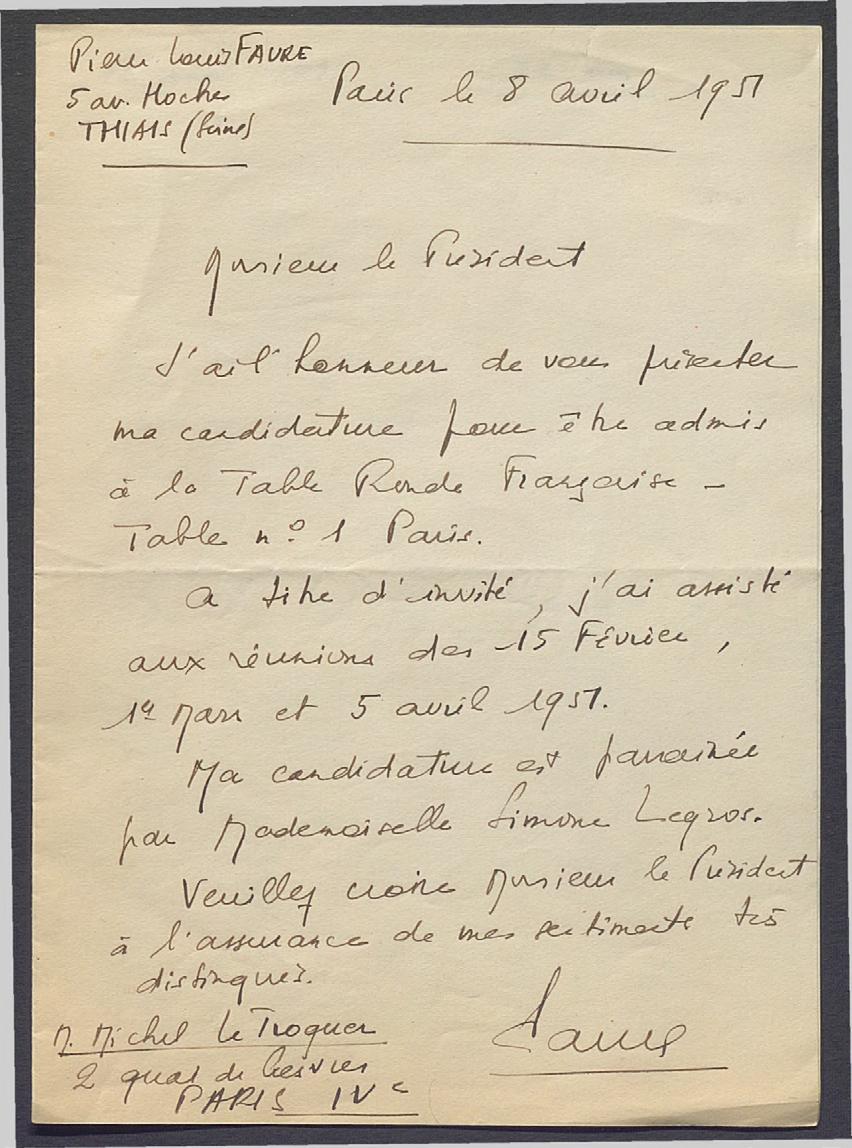 Pierre Louis FAURE
5 av. Hoche
THIAIS (Seine)
Paris le 8 avril 1951
Monsieur le Président
J'ai l'honneur de vous présenter
ma candidature pour être admis
à la Table Ronde Française -
Table n° 1 Paris.
A titre d'invité, j'ai assisté
aux réunions des 15 Février,
1er Mars et 5 avril 1951.
Ma candidature est parrainée
par Mademoiselle Simone Legros.
Veuillez croire Monsieur le Président
à l'assurance de mes sentiments très
distingués.
Faure
M. Michel Le Troquer
2 quai de Gesvres
PARIS IVe